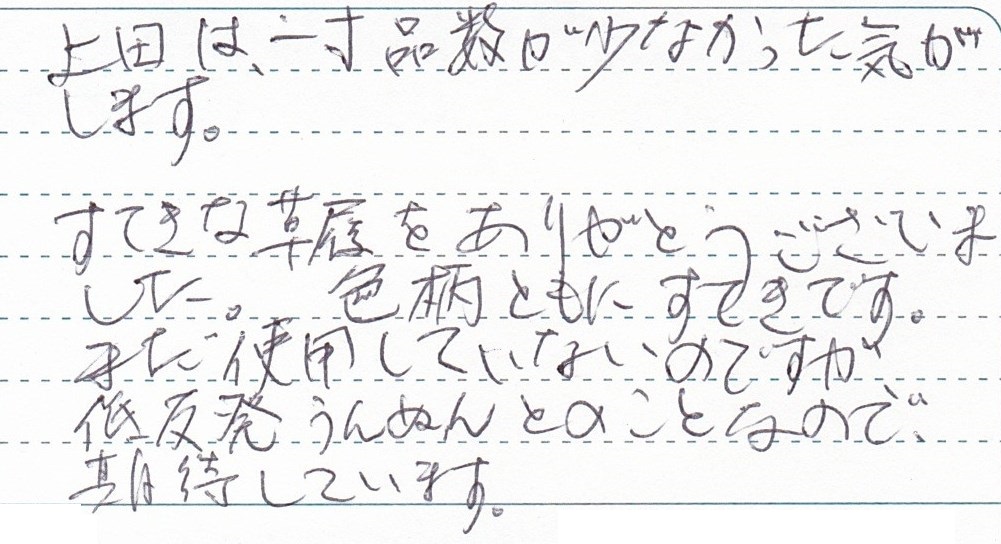 上田は、一寸品数が少なかった気が
します。
すてきな草履をありがとうございま
した。 色柄ともにすてきです。
まだ使用していないのですが、
低反発うんぬんとのことなので、
期待しています。